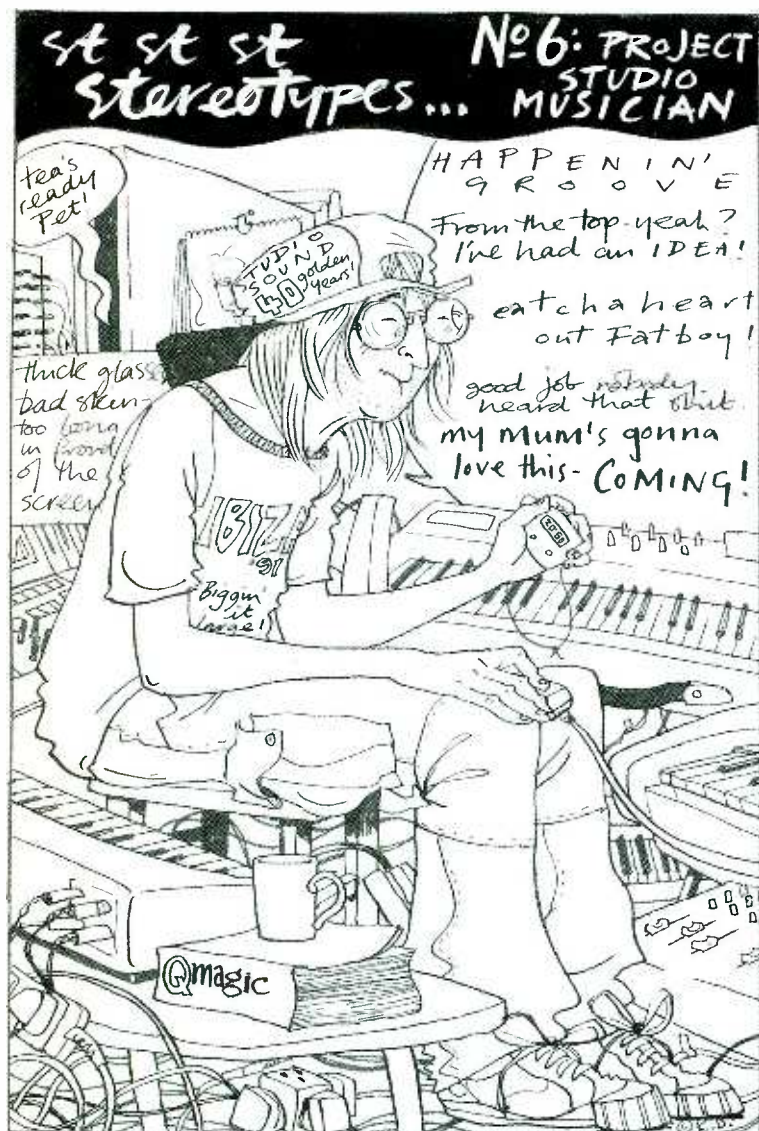 st st st
stereotypes...
No 6: PROJECT
STUDIO
MUSICIAN
tea's
ready
Pet!
HAPPENIN'
GROOVE
From the top yeah?
I've had an IDEA!
eatcha heart
out Fatboy!
good job nobody
heard that shit.
my mum's gonna
love this - COMING!
TUDIO
SOUND
40 golden
years!
thick glass
bad skin -
too long
in front
of the
screen
IBIZ
'91
Biggin
it
large!
Qmagic